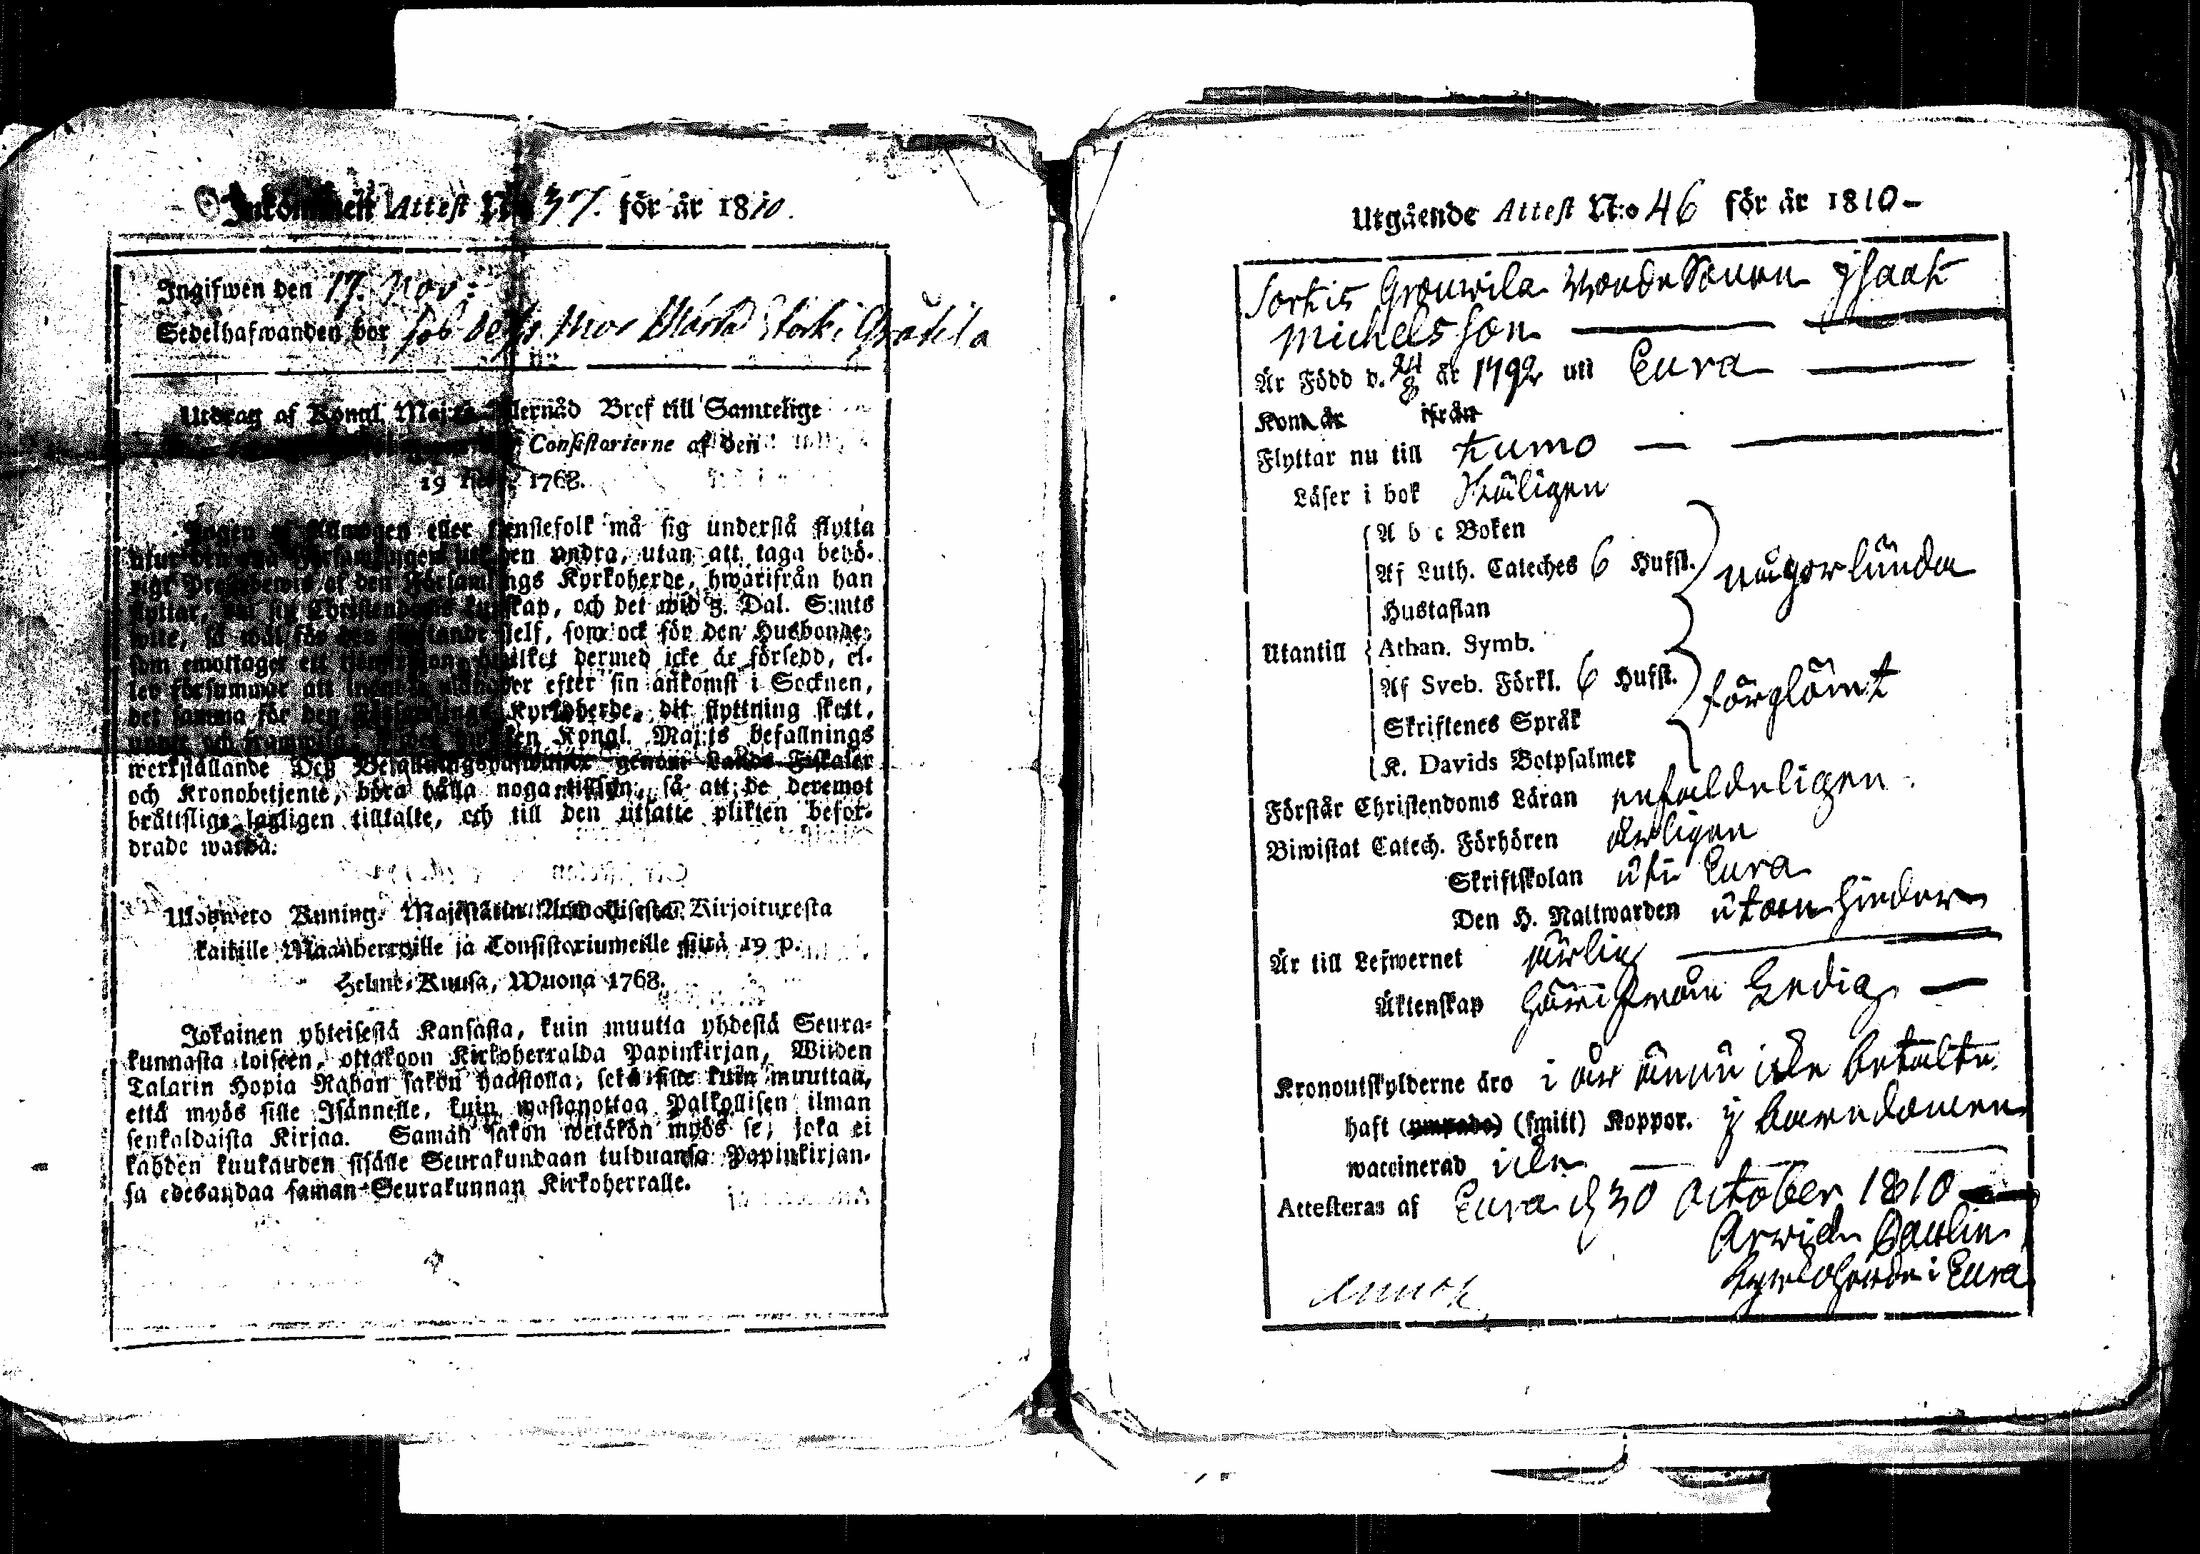 Inkommen Attest N:o 37. för år 1810.
Ingifwen den 17. Nov:
Sedelhafwanden bor hos dess Mor
Utdrag af Kongl. Maj:ts Bref till Samtelige
Consistorierne af den
19 1768.
Ingen af Allmogen eller tjenstefolk må sig understå flytta
utur den ena Församlingen uti den andra, utan att taga behö-
rigt af den Församlings Kyrkoherde, hwarifrån han
flyttar, om sig Christendoms kunskap, och det wid 5. Dal. S:mts
wite, så wäl för den flyttande sjelf, som ock för den Husbonde,
som emottager ett hwilket dermed icke är försedd, el-
ler försummar att efter sin ankomst i Socknen,
det samma för den Kyrkoherde, dit flyttning skett,
Kongl. Maj:ts befallnings
werkställande Deß Befallningshafwande genom Lands Fiskaler
och Kronobetjente, böra hålla noga tillsyn, så att de deremot
bråttslige lagligen tilltalte, och till den utsatte plikten befor-
drade warda.
Ulosweto Kuning. Majestätin Armollisesta Kirjoituxesta
kaikille Maanherroille ja Consistoriumeille siitä 19 p.
Helme-Kuusa, Wuona 1768.
Jokainen yhteisestä Kansasta, kuin muutta yhdestä Seura-
kunnasta toiseen, ottakoon Kirkoherralda Papinkirjan, Wiiden
Talarin Hopia Rahan sakon haastolla; sekä sille kuin muuttaa,
että myös sille Isännelle, kuin wastanottaa Palkollisen ilman
senkaldaista Kirjaa. Saman sakon wetäkön myös se, joka ei
kahden kuukauden sisälle Seurakundaan tulduansa Papinkirjan-
sa edesandaa saman Seurakunnan Kirkoherralle.
Utgående Attest N:o 46 för år 1810-
Sorkis Isaak
Michelsson
Är Född d. 24/8 år 1792 uti Eura
Kom år ifrån
Flyttar nu till Kumo
Läser i bok
A b c Boken
Af Luth. Cateches 6 Hufst. någorlunda
Hustaflan
Utantill Athan. Symb.
Af Sveb. Förkl. 6 Hufst. förglömt
Skriftenes Språk
K. Davids Botpsalmer
Förstår Christendoms Läran enfaldeligen
Biwistat Catech. Förhören årligen
Skriftskolan uti Eura
Den H. Nattwarden utan hinder
Är till Lefwernet ärlig
Äktenskap härifrån Ledig
Kronoutskylderne äro i år ännu icke betalte
haft (ympade) (smitt) Koppor. i barndomen
waccinerad icke
Attesteras af Eura d 30 October 1810
Arvid Paulin
Kyrkoherde i Eura